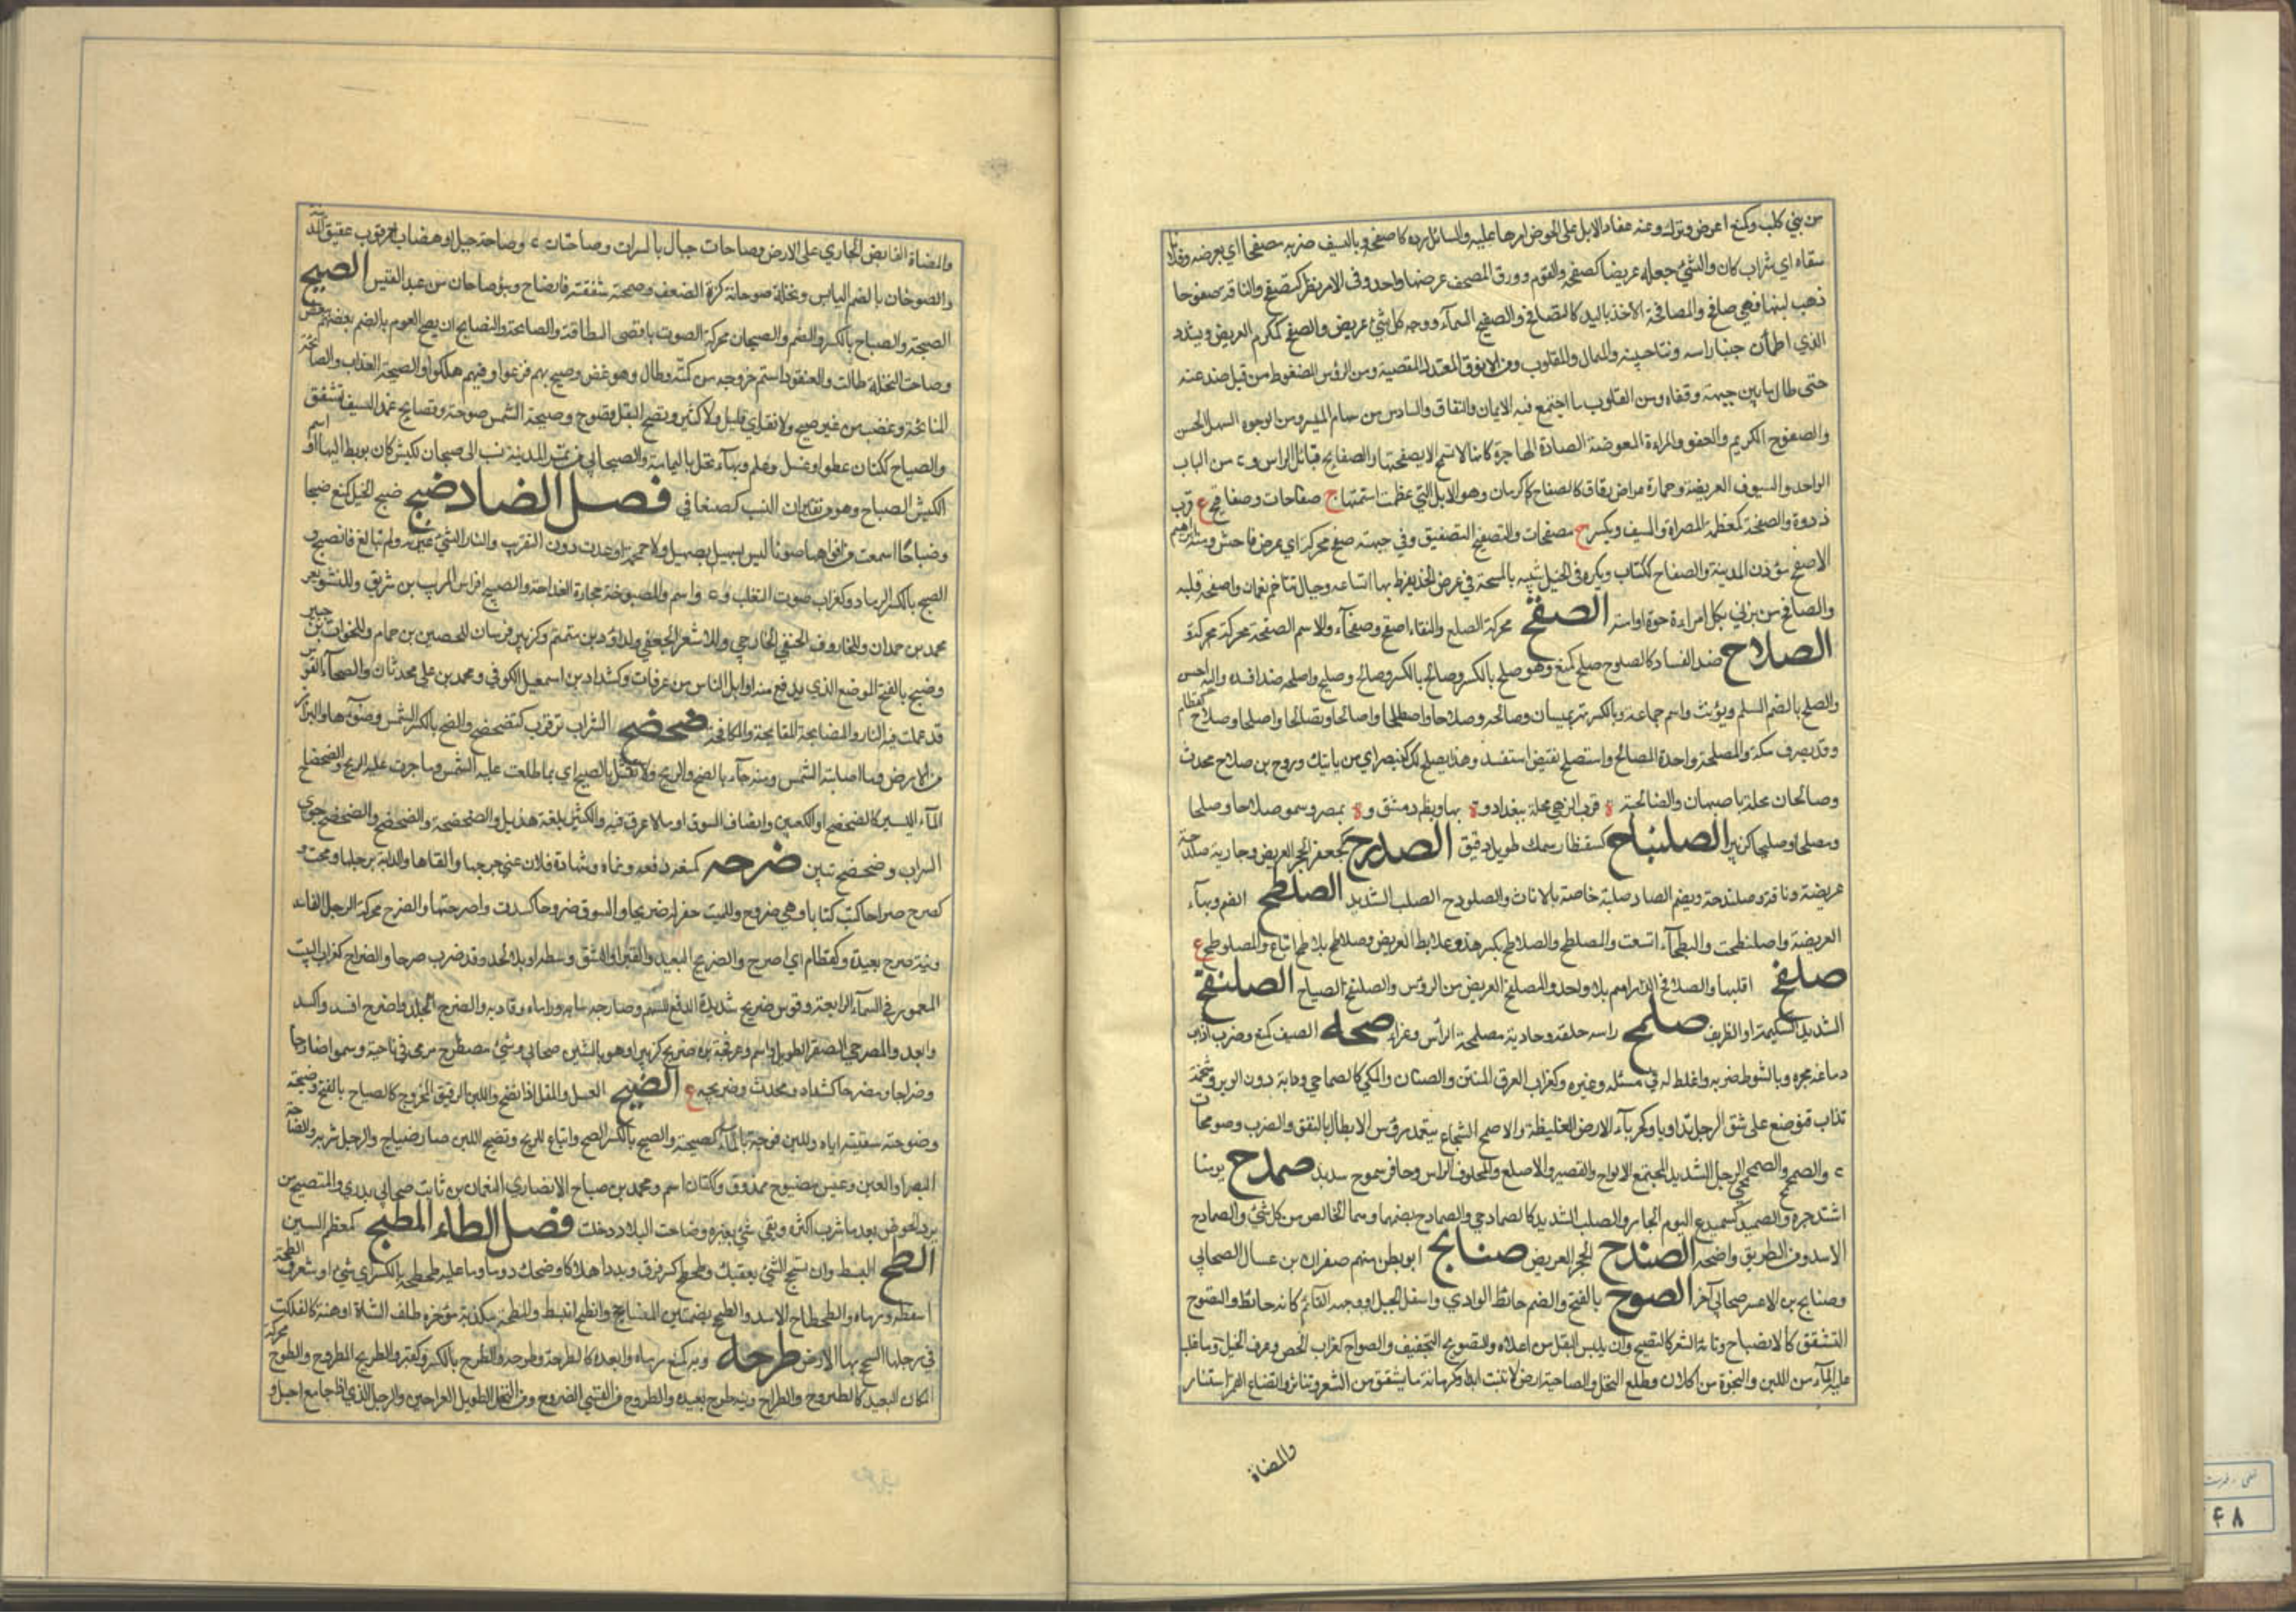 من بني كلب وكمنع اعرض وترك وعنه عفا والابل على الحوض امرها عليه والسائل رده كاصفحه وبالسيف ضربه مصفحا اي بعرضه وفلانا
سقاه اي شراب كان والشئ جعله عريضا كصفحه والقوم وورق المصحف عرضها واحدا واحدا وفي الامر نظر كتصفح والناقة صفوحا
ذهب لبنها فهي صافح والمصافحة الاخذ باليد كالتصافح والصفيح السمآء ووجه كل شئ عريض والمصفح كمكرم العريض ويشدد
الذي اطمأن جنبا راسه ونتا جبينه والممال والمقلوب ومن الانوف المعتدل القصبة ومن الرؤس المضغوط من قبل صدغيه
حتى طال ما بين جبهته وقفاه ومن القلوب ما اجتمع فيه الايمان والنفاق والسادس من سهام الميسر ومن الوجوه السهل الحسن
والصفوح الكريم والعفو والمراءة المعرضة الصادة الهاجرة كانها لا تسمح الا بصفحتها والصفايح قبائل الراس و ء من الباب
الواحد والسيوف العريضة وحجارة عراض رقاق كالصفاح كرمان وهو الابل التي عظمت اسنمتها ج صفاحات وصفافيح ع قرب
ذروة والصفحة كمعظمة المصراة والسيف ويكسر ج مصفحات والتصفيح التصفيق وفي جبهته صفح محركة اي عرض فاحش ومنه ابراهيم
الاصفح مؤذن المدينة والصفاح ككتاب ويكره في الخيل شبيه بالمسحة في عرض الخد يفرط بها اتساعه وجبال تتاخم نعمان واصفحه قلبه
والصافح من يزني بكل امراءة حرة او امة الصقح محركة الصلع والنعت اصقح وصقحآء والاسم الصقحة محركة
الصلاح ضد الفساد كالصلوح صلح كمنع وهو صلح بالكسر وصالح وصليح واصلحه ضد افسده واليه احسن
والصلح بالضم السلم ويؤنث واسم جماعة وبالكسر نهر بميسان وصالحه وصلاحا واصطلحا واصالحا وتصالحا واصلحا وصلاح كقطام
وقد يصرف مكة والمصلحة واحدة المصالح واستصلح نقيض استفسد وهذا يصلح لك كينصر اي من بابتك وروح بن صلاح محدث
وصالحان محلة باصبهان والصالحية ة قرب الرهي محلة ببغداد وة بها وبظ دمشق وة بمصر وسمو صلاحا وصلحا
ومصلحا وصليحا كزبير الصلنباح كسقنطار سمك طويل دقيق الصلدح كجعفر الحجر العريض وجارية صلدحة
عريضة وناقة وصلندحة ويضم الصاد صلبة خاصة بالاناث والصلودح الصلب الشديد الصلطح الضخم وبهآء
العريضة واصلنطحت والبطحآء اتسعت والمصلطح والصلاطح بكسرهن وعلابط العريض وصلاطح بلاطح اتباع والصلوطح ع
صلفح اقلبها والصلافح الدراهم بلا واحد والمصلفح العريض من الرؤس والصلنفح الصياح الصلنقح
الشديد الشكيمة او الظريف صلمح راسه حلقه وجادية مصلمحة الراس وعزاء صمحه الصيف كمنع وضرب اذاب
دماغه بحره وبالسوط ضربه واغلظ له في مسئلة وغيره وكغراب العرق المنتن والصنان والكي كالصماحي ودابة دون الوبر وشحمة
تذاب فتوضع على شق الرجل تداويا وكحرباء الارض الغليظة والاصمح الشجاع يتعمد رؤس الابطال بالنقف والضرب وصومحان
ء والصمحمح والصمحمحي الرجل الشديد المجتمع الالواح والقصير والاصلع والمحلوق الراس وحافر صموح شديد صمدح يومنا
اشتد حره والصميدح كسميدع اليوم الحار والصلب الشديد كالصمادحي والصمادح بضمهما وهما الخالص من كل شئ والصمادح
الاسد ومن الطريق واضحه الصندح الحجر العريض صنابح ابو بطن منهم صفوان بن عسال الصحابي
وصنابح بن الاعسر صحابي آخر الصوح بالفتح والضم حائط الوادي واسفل الجبل او وجهه القائم كانه حائط والتصوح
التشقق كالانصياح وتناثر الشعر كالتصيح وان ييبس البقل من اعلاه والتصويح التجفيف والصواح كغراب الجص وعرق الخيل وما غلب
عليه المآء من اللبن والنجوة من الارض وطلع النخل والصاحة ارض لا تنبت ابدا وكرمانة ما تشقق من الشعر وتناثر وانصاح القمر استنار
والمنصاح
والمنصاح الفايض الجاري على الارض وصاحات جبال بالسراة وصاحتان ء وصاحة جبل او هضاب حمر قرب عقيق المدينة
والصوحان بالضم اليابس ونخلة صوحانة كزة السعف وصحته شققته فانصاح وبنو صوحان من عبد القيس الصيح
الصيحة والصياح بالكسر والضم والصيحان محركة الصوت باقصى الطاقة والمصايحة والتصايح ان يصيح القوم بعضهم ببعض
وصاحت النخلة طالت والعنقود استتم خروجه من كمته وطال وهو غض وصيح بهم فزعوا وفيهم هلكوا والصيحة العذاب والصائحة
المناحة وغضب من غير صيح ولا نفر اي قليل ولا كثير وتصيح البقل تصوح وصيحته الشمس صوحته وتصايح غمد السيف تشقق
والصياح ككتان عطر او غسل وعلم وبهآء نخل باليمامة والصيحاني من تمر المدينة نسب الى صيحان لكبش كان يربط اليها او اسم
الكبش الصياح وهو من تغييرات النسب كصنعاني فصل الضاد ضبح ضبح الخيل كمنع ضبحا
وضباحا اسمعت من افواهها صوتا ليس بصهيل ولا حمحمة او عدت دون التقريب والنار الشئ غيرته ولم تبالغ فانضبح و
الضبح بالكسر الرماد وكغراب صوت الثعلب و ء واسم والمضبوحة حجارة القداحة والضبيح افراس الريب بن شريق وللشويعر
محمد بن حمدان وللخاروف الحنفي الخارجي وللاشعر الجعفي ولداؤد بن متمم وكزبير فرسان للحصين بن حمام وللخوات بن جبير
وضبح بالفتح الموضع الذي يدفع منه اوايل الناس من عرفات وكشداد بن اسمعيل الكوفي ومحمد بن علي محدثان والضبحآء القوس
قد عملت فيه النار والمضابحة المقابحة والمكافحة ضحضح السراب ترقرق كتضحضح والضح بالكسر الشمس وضوئها والبراز
من الارض وما اصابته الشمس ومنه جآء بالضح والريح ولا تقل بالضيح اي بما طلعت عليه الشمس وما جرت عليه الريح والضحضاح
المآء اليسير كالضحضح او الى الكعبين او انصاف السوق او ما لا غرق فيه والكثير بلغة هذيل والضحضحة والضحضح جري
السراب وضحضح تبين ضرحه كمنعه دفعه ونحاه وشهادة فلان عني جرحها والقاها والدابة برجلها رمحت و
كضرح ضراحا ككتب كتابا وهي ضروح وللميت حفر له ضريحا والسوق ضروحا كسدت واضرحتها والضرح محركة الرجل الفاسد
ونية ضرح بعيدة وكقطام اي اضرح والضريح البعيد والقبر او الشق وسطه او بلا لحد وقد ضرح ضرحا والضراح كغراب البيت
المعمور في السمآء الرابعة وقوس ضروح شديدة الدفع للسهم وضارحه سابه وراماه وقاربه والضرح الجلد واضرح افسد واكسد
وابعد والمضرحي الصقر الطويل واسم وعرفجة بن ضريح كزبير او هو بالشين صحابي وشئ مضطرح مرمي في ناحية وسموا ضارحا
وضراحا ومضرحا كشداد ومحدث وضريحة ع الضيح العسل والمقل اذا نضج واللبن الرقيق الممزوج كالضياح بالفتح وضيحته
وضوحته سقيته اياه واللبن مزجته بالمآء كضيحته والضيح بالكسر الضح واتباع للريح وتضيح اللبن صار ضياحا والرجل شربه والضاحة
البصر او العين وعيش مضيوح ممذوق وككتان اسم ومحمد بن ضياح الانصاري النعمان بن ثابت صحابي بدري والمتضيح من
يرد الحوض بعد ما شرب اكثره وبقي شئ بغيره وضاحت البلاد خلت فصل الطاء المطبح كمعظم السمين
الطح البسط وان تسحج الشئ بعقبك وطحطح كسر وفرق وبدد اهلاكا وضحك دونا وما عليه طحطحة بالكسر اي شئ او شعر والطحة
اسقطه ورماه والطحطاح الاسد والطحح بضمتين المساحج وانطح انبسط والمطحة كمذبة مؤخره ظلف الشاة او هنة كالفلكة
في رجلها تسحج بها الارض طرحه وبه كمنع رماه وابعده كاطرحه وطرحه والطرح بالكسر وكقبر والطريح المطروح والطرح محركة
المكان البعيد كالطروح والطراح ونية طروح بعيدة والطروح من القسي الضروح ومن النخل الطويلة العراجين والرجل الذي اذا جامع احبل و